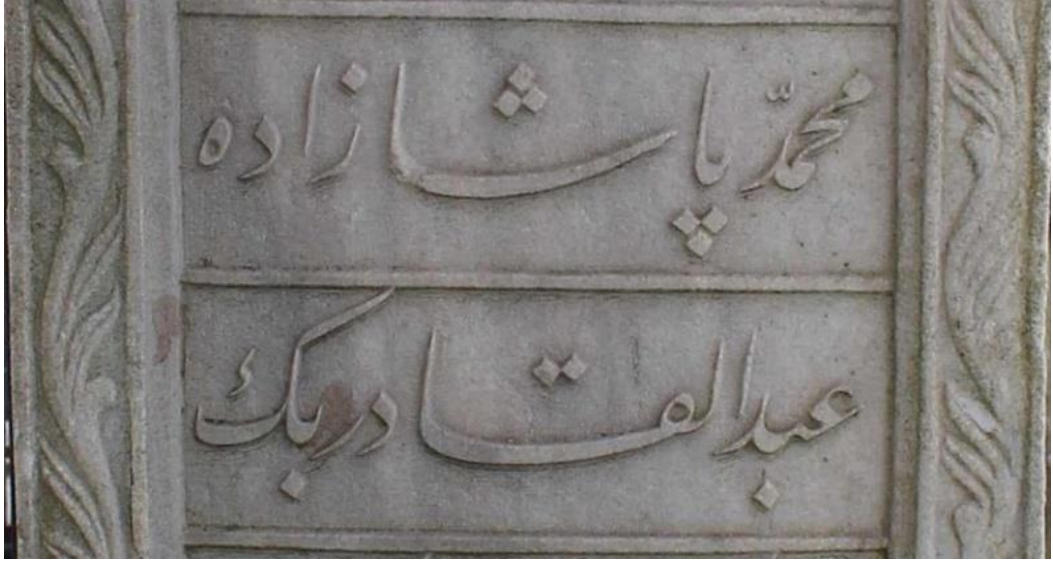 محمّد پاشا زاده
عبد القادر بك